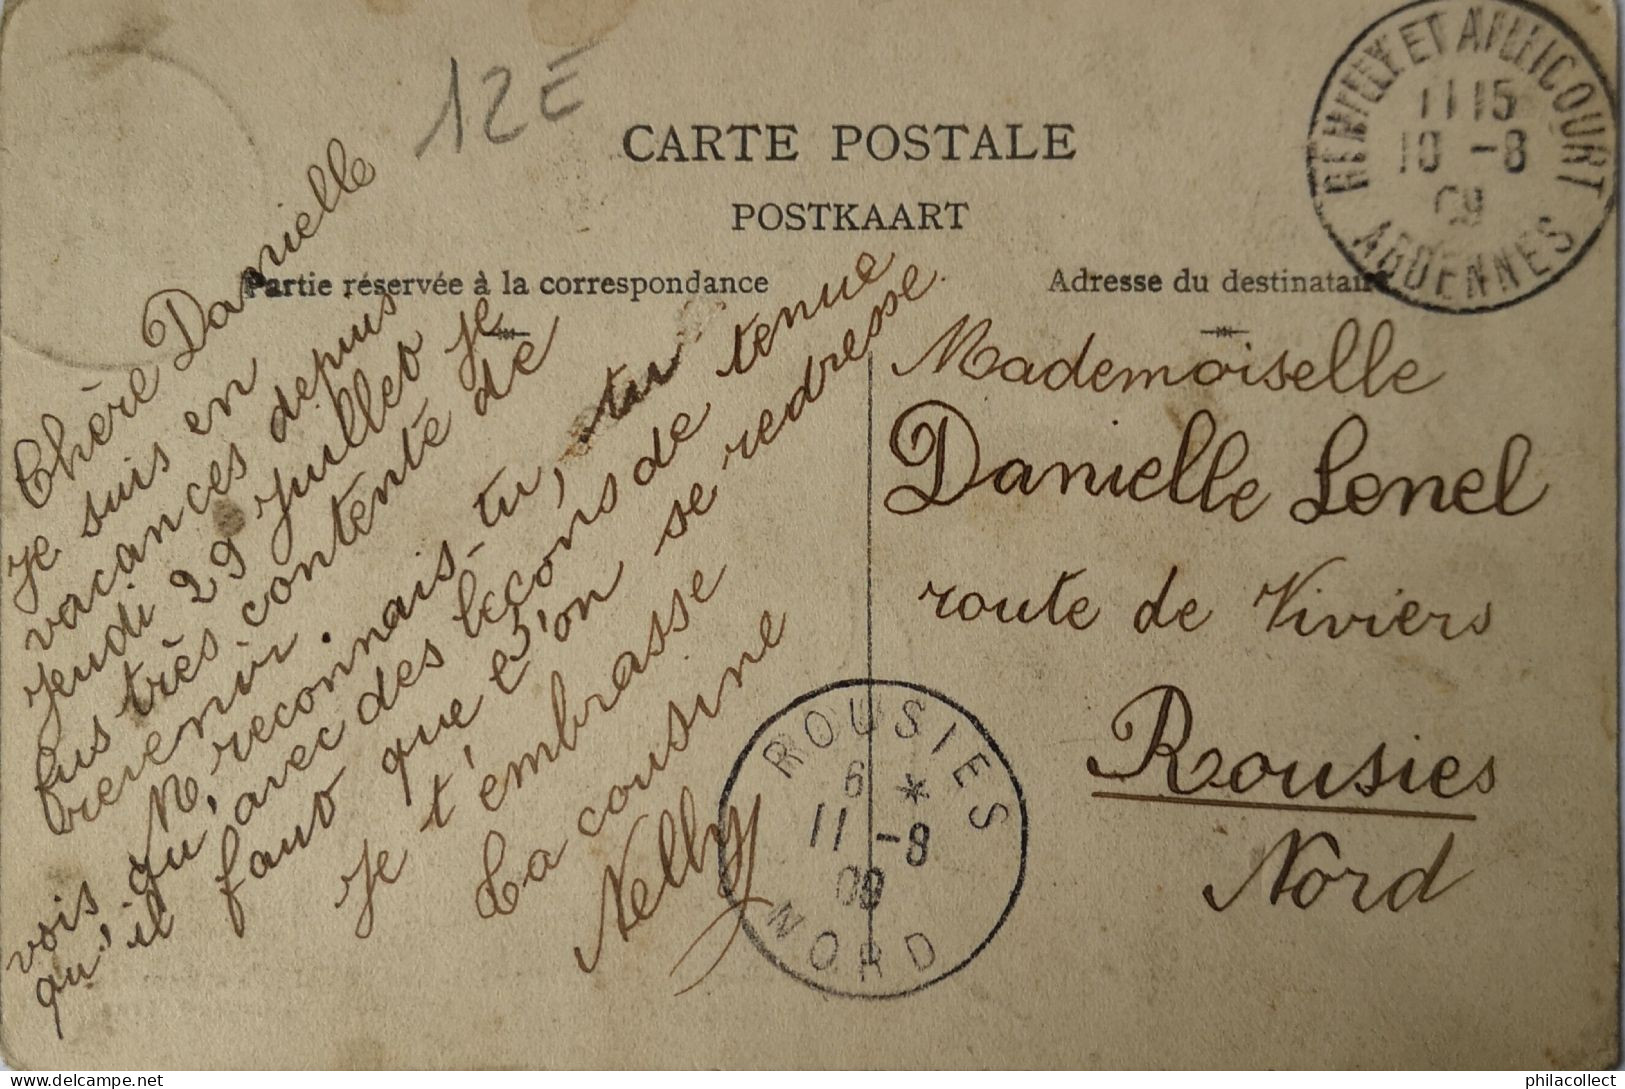 12E
CARTE POSTALE
POSTKAART
Partie réservée à la correspondance
Adresse du destinataire
REMILLY ET AILLICOURT
11 15
10 -8
09
ARDENNES
Chère Danielle
je suis en
vacances depuis
jeudi 29 juillet je
fus très contente de
revenir.
M, reconnais-tu, tu
vois qu, avec des leçons de tenue
qu'il faut que l'on se redresse.
Je t'embrasse
La cousine
Nelly
Mademoiselle
Danielle Lenel
route de Viviers
Rousies
Nord
ROUSIES
6 *
11 -8
09
NORD
philacollect